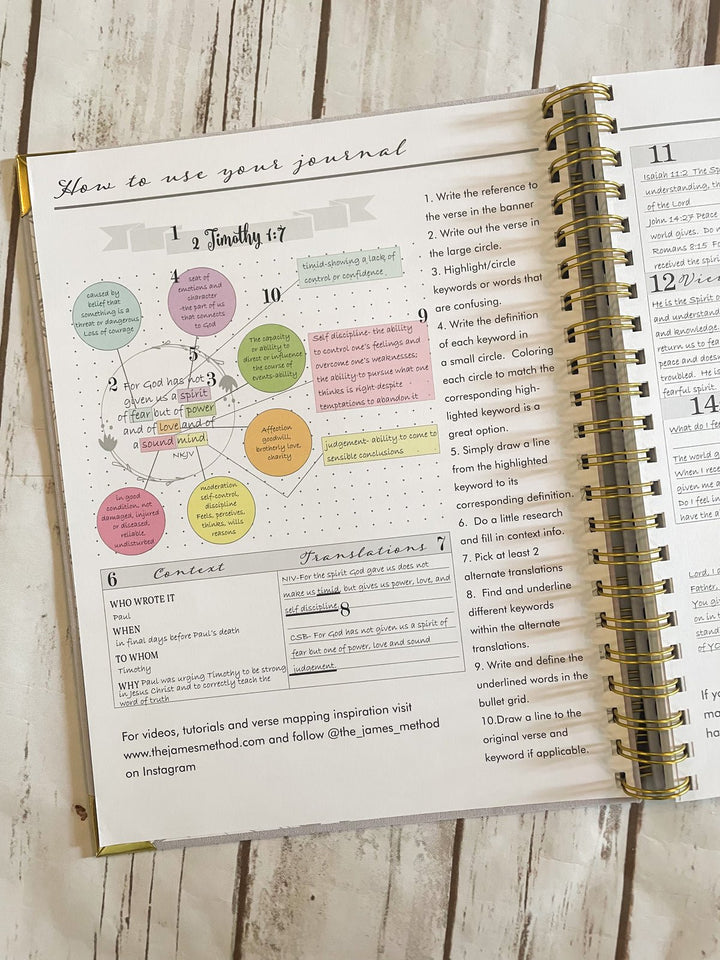 How to use your journal
1
2 Timothy 1:7
4
seat of
emotions and
character
-the part of us
that connects
to God
caused by
belief that
something is a
threat or dangerous
Loss of courage
10
timid-showing a lack of
control or confidence
9
The capacity
or ability to
direct or influence
the course of
events-ability
Self discipline- the ability
to control one's feelings and
overcome one's weaknesses;
the ability to pursue what one
thinks is right despite
temptations to abandon it
5
2
3
For God has not
given us a spirit
of fear but of power
and of love and of
a sound mind.
NKJV
Affection
goodwill,
brotherly love,
charity
judgement- ability to come to
sensible conclusions
in good
condition, not
damaged, injured
or diseased,
reliable,
undisturbed
moderation
self-control,
discipline
Feels, perceives,
thinks, wills
reasons
6
Context
WHO WROTE IT
Paul
WHEN
in final days before Paul's death
TO WHOM
Timothy
WHY Paul was urging Timothy to be strong
in Jesus Christ and to correctly teach the
word of truth
Translations 7
NIV-For the spirit God gave us does not
make us timid, but gives us power, love, and
self discipline. 8
CSB- For God has not given us a spirit of
fear but one of power, love and sound
judgement.
For videos, tutorials and verse mapping inspiration visit
www.thejamesmethod.com and follow @the_james_method
on Instagram
1. Write the reference to
the verse in the banner
2. Write out the verse in
the large circle.
3. Highlight/circle
keywords or words that
are confusing.
4. Write the definition
of each keyword in
a small circle. Coloring
each circle to match the
corresponding high-
lighted keyword is a
great option.
5. Simply draw a line
from the highlighted
keyword to its
corresponding definition.
6. Do a little research
and fill in context info.
7. Pick at least 2
alternate translations
8. Find and underline
different keywords
within the alternate
translations.
9. Write and define the
underlined words in the
bullet grid.
10.Draw a line to the
original verse and
keyword if applicable.
11
Isaiah 11:2 The Sp
understanding, th
of the Lord
John 14:27 Peace
world gives. Do n
Romans 8:15 F
received the spiri
12 Vie
He is the Spirit o
and understand
and knowledge
return us to fea
peace and does
troubled. He is
fearful spirit.
14
What do I fee
The world g
When I rece
given me a
Do I feel in
have the a
Lord, I a
Father,
You giv
on in t
stand
of YO
If y
ma
ha